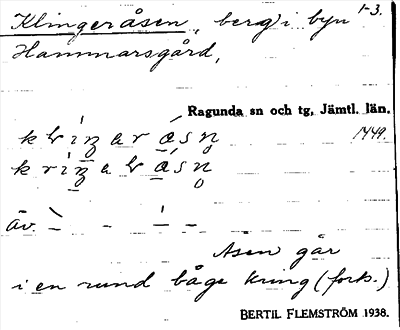 Klingeråsen, berg i byn 1-3.
Hammarsgård,
Ragunda sn och tg, Jämtl. län.
1449.
äv.
Åsen går
i en rund båge kring (forts.)
BERTIL FLEMSTRÖM 1938.